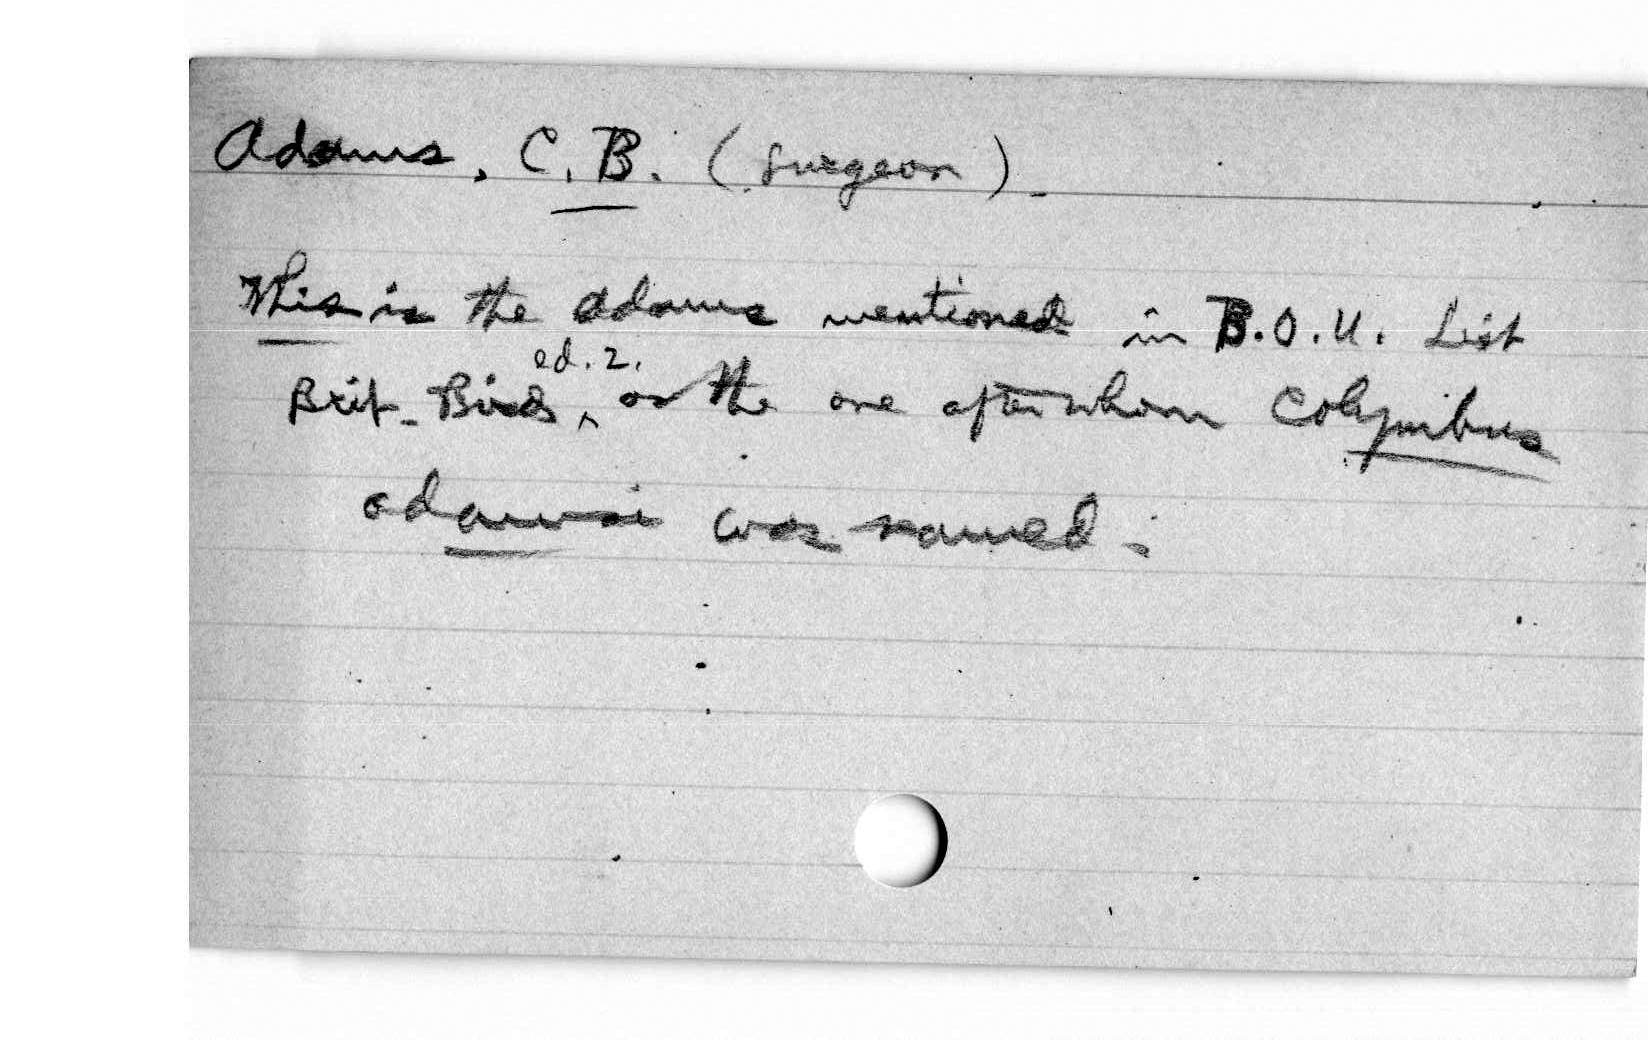 Adams, C. B. (Surgeon).
This is the Adams mentioned in B.O.U. List
Brit. Birds, ed. 2. as the one after whom Colymbus
adamsi was named.